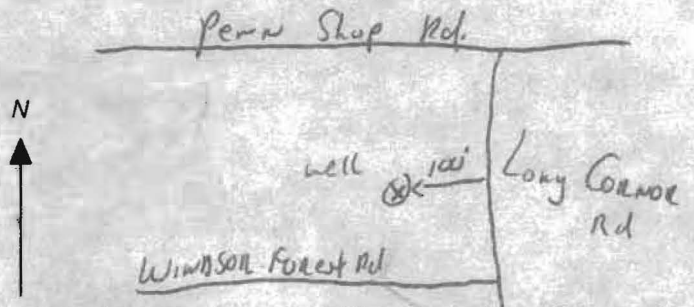 Penn Shop Rd.
N
well
100'
Long Cornor
Rd
Windsor Forest Rd